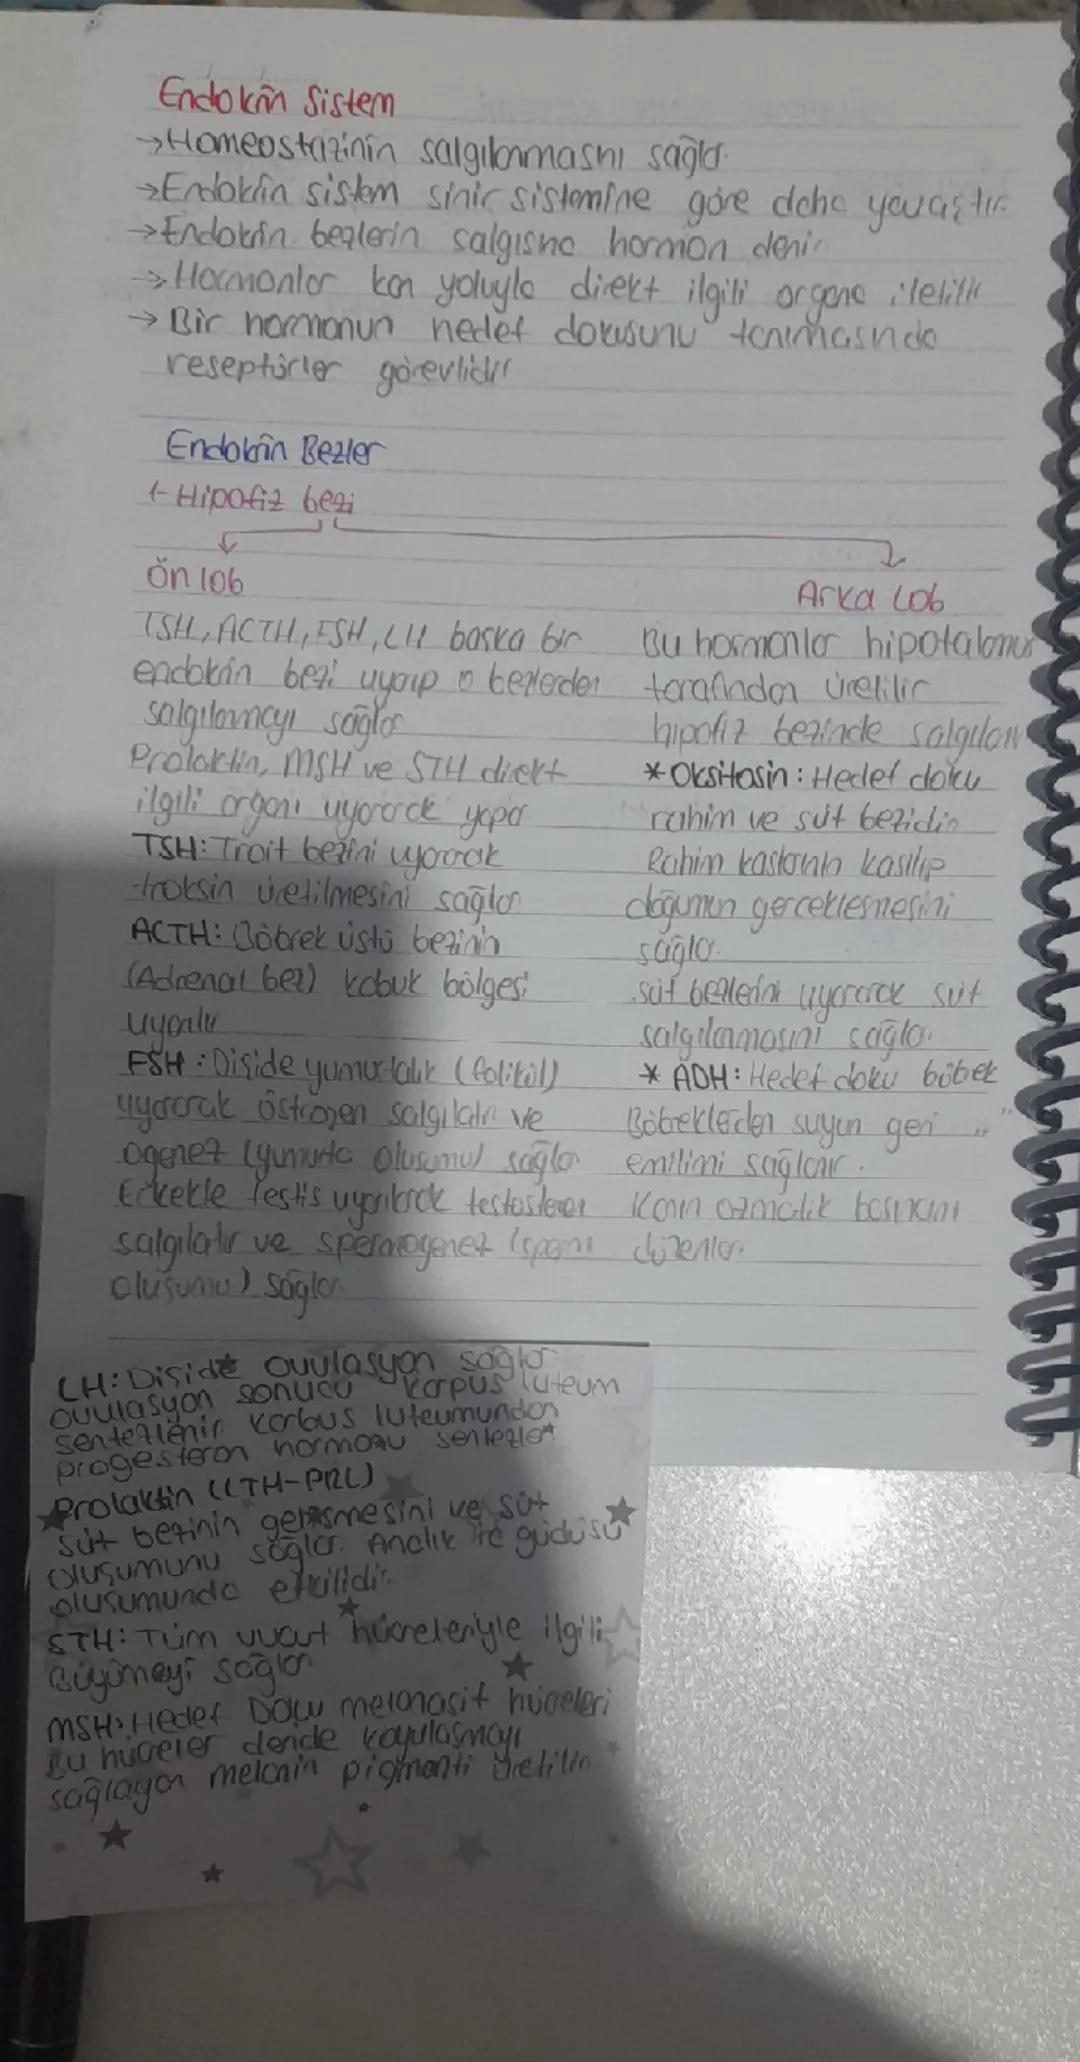 Endokrin Sistem
→Homeostazinin salgılanmasını sağlar.
→Endokrin sistem sinir sistemine göre daha yavaştır.
→Endokrin bezlerin salgısına hormon denir
→Hormonlar kan yoluyla direkt ilgili organa iletilir
→Bir hormonun hedef dokusunu tanımasında
reseptörler görevlidir
Endokrin Bezler
1-Hipofiz bezi
Ön lob
TSH, ACTH, FSH, LH başka bir
endokrin bezi uyarıp o bezlerden
salgılanmayı sağlar
Prolaktin, MSH ve STH direkt
ilgili organı uyararak yapar
TSH: Troit bezini uyararak
troksin üretilmesini sağlar
ACTH: Böbrek üstü bezinin
(Adrenal bez) kabuk bölgesi
uyarılır
FSH: Dişide yumurtalık (folikül)
uyararak östrojen salgılatır ve
ogenez (yumurta oluşumu) sağlar
Erkekte testis uyarılarak testosteron
salgılatır ve spermogenez (sperm
oluşumu) sağlar.
Arka Lob
Bu hormonlar hipotalamus
tarafından üretilir
hipofiz bezinde salgılanır
*Oksitosin: Hedef doku
rahim ve süt bezidir
Rahim kaslarının kasılıp
doğumun gerçekleşmesini
sağlar.
süt bezlerini uyararak süt
salgılanmasını sağlar.
* ADH: Hedef doku böbrek
Böbreklerden suyun geri
emilimi sağlanır.
Kanın ozmotik basıncını
düzenler
LH: Dişide ovulasyon sağlar
ovulasyon sonucu korpus luteum
sentezlenir korbus luteumundan
progesteron hormonu sentezler
Prolaktin (LTH-PRL)
süt bezinin gelişmesini ve süt
oluşumunu sağlar. Analık iç güdüsü
oluşumunda etkilidir.
STH: Tüm vücut hücreleriyle ilgili
Büyümeyi sağlar
MSH: Hedef Doku melanosit hücreleri
Bu hücreler deride koyulaşmayı
sağlayan melanin pigmenti üretilir